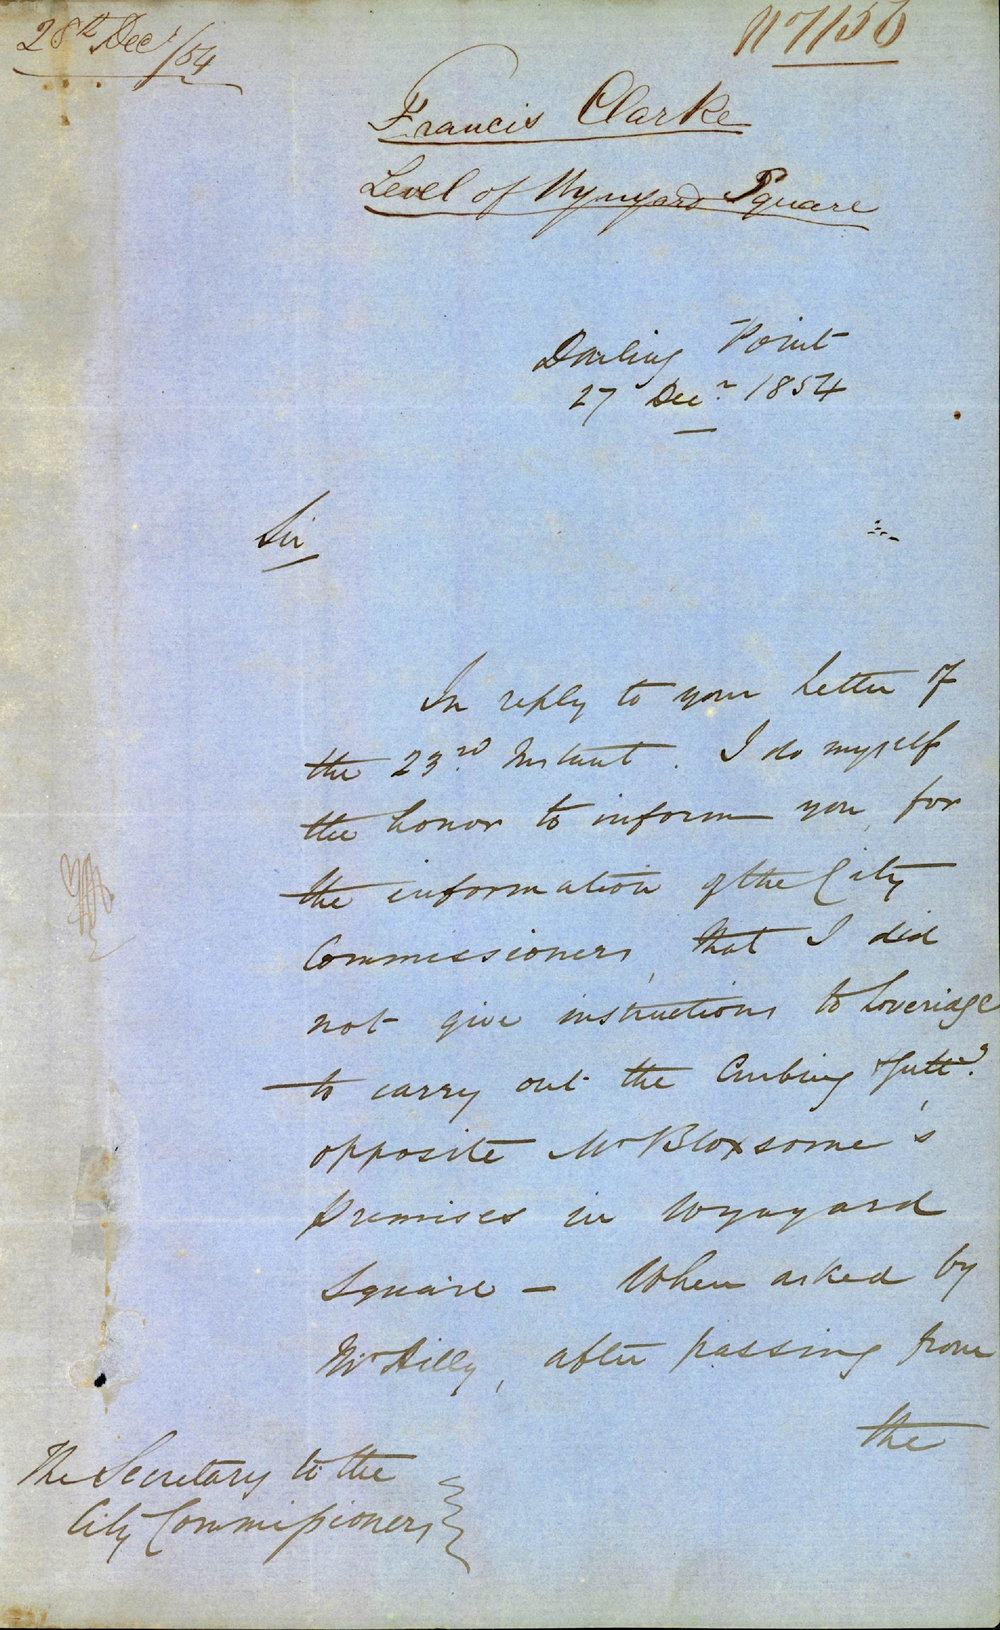 28th Decr/54
1171/56
Francis Clarke
Level of Wynyard Square
Darling Point
27 Decr 1854
Sir
In reply to your letter of
the 23rd Instant. I do myself
the honor to inform you, for
the information of the City
Commissioners, that I did
not give instructions to Loveridge
to carry out the Curbing & Gutt.g
opposite Mr Bloxsome's
premises in Wynyard
Square - When asked by
Mr Hilly, after passing from
the
The Secretary to the
City Commissioners